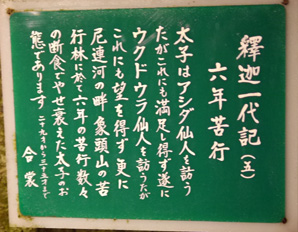 釋迦一代記(五)
六年苦行
太子はアシダ仙人を訪う
たがこれにも満足を得ず遂に
ウクドウラ仙人を訪うたが
これにも望を得ず 更に
尼連河の畔 象頭山の苦
行林に於て六年の苦行数々
の断食でやせ衰えた太子のお
態であります 二十九才から三十五才まで
合掌